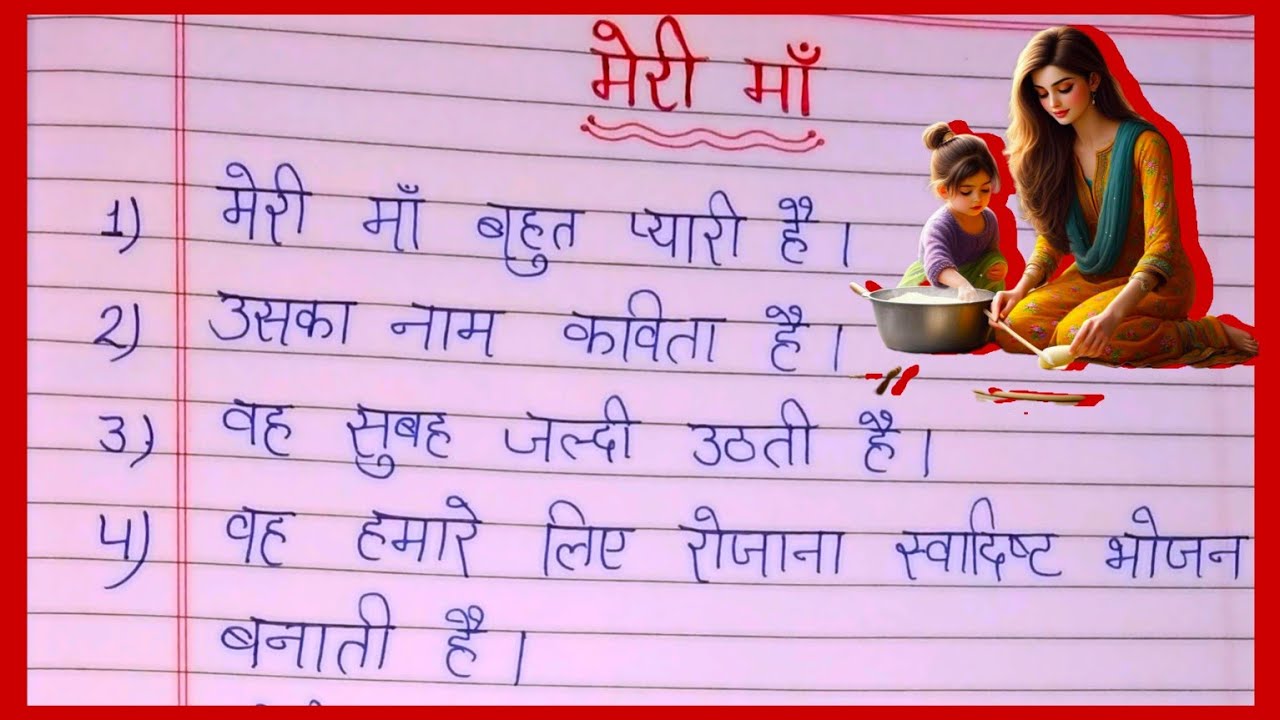 मेरी माँ
1) मेरी माँ बहुत प्यारी है।
2) उसका नाम कविता है।
3) वह सुबह जल्दी उठती है।
4) वह हमारे लिए रोजाना स्वादिष्ट भोजन
बनाती है।